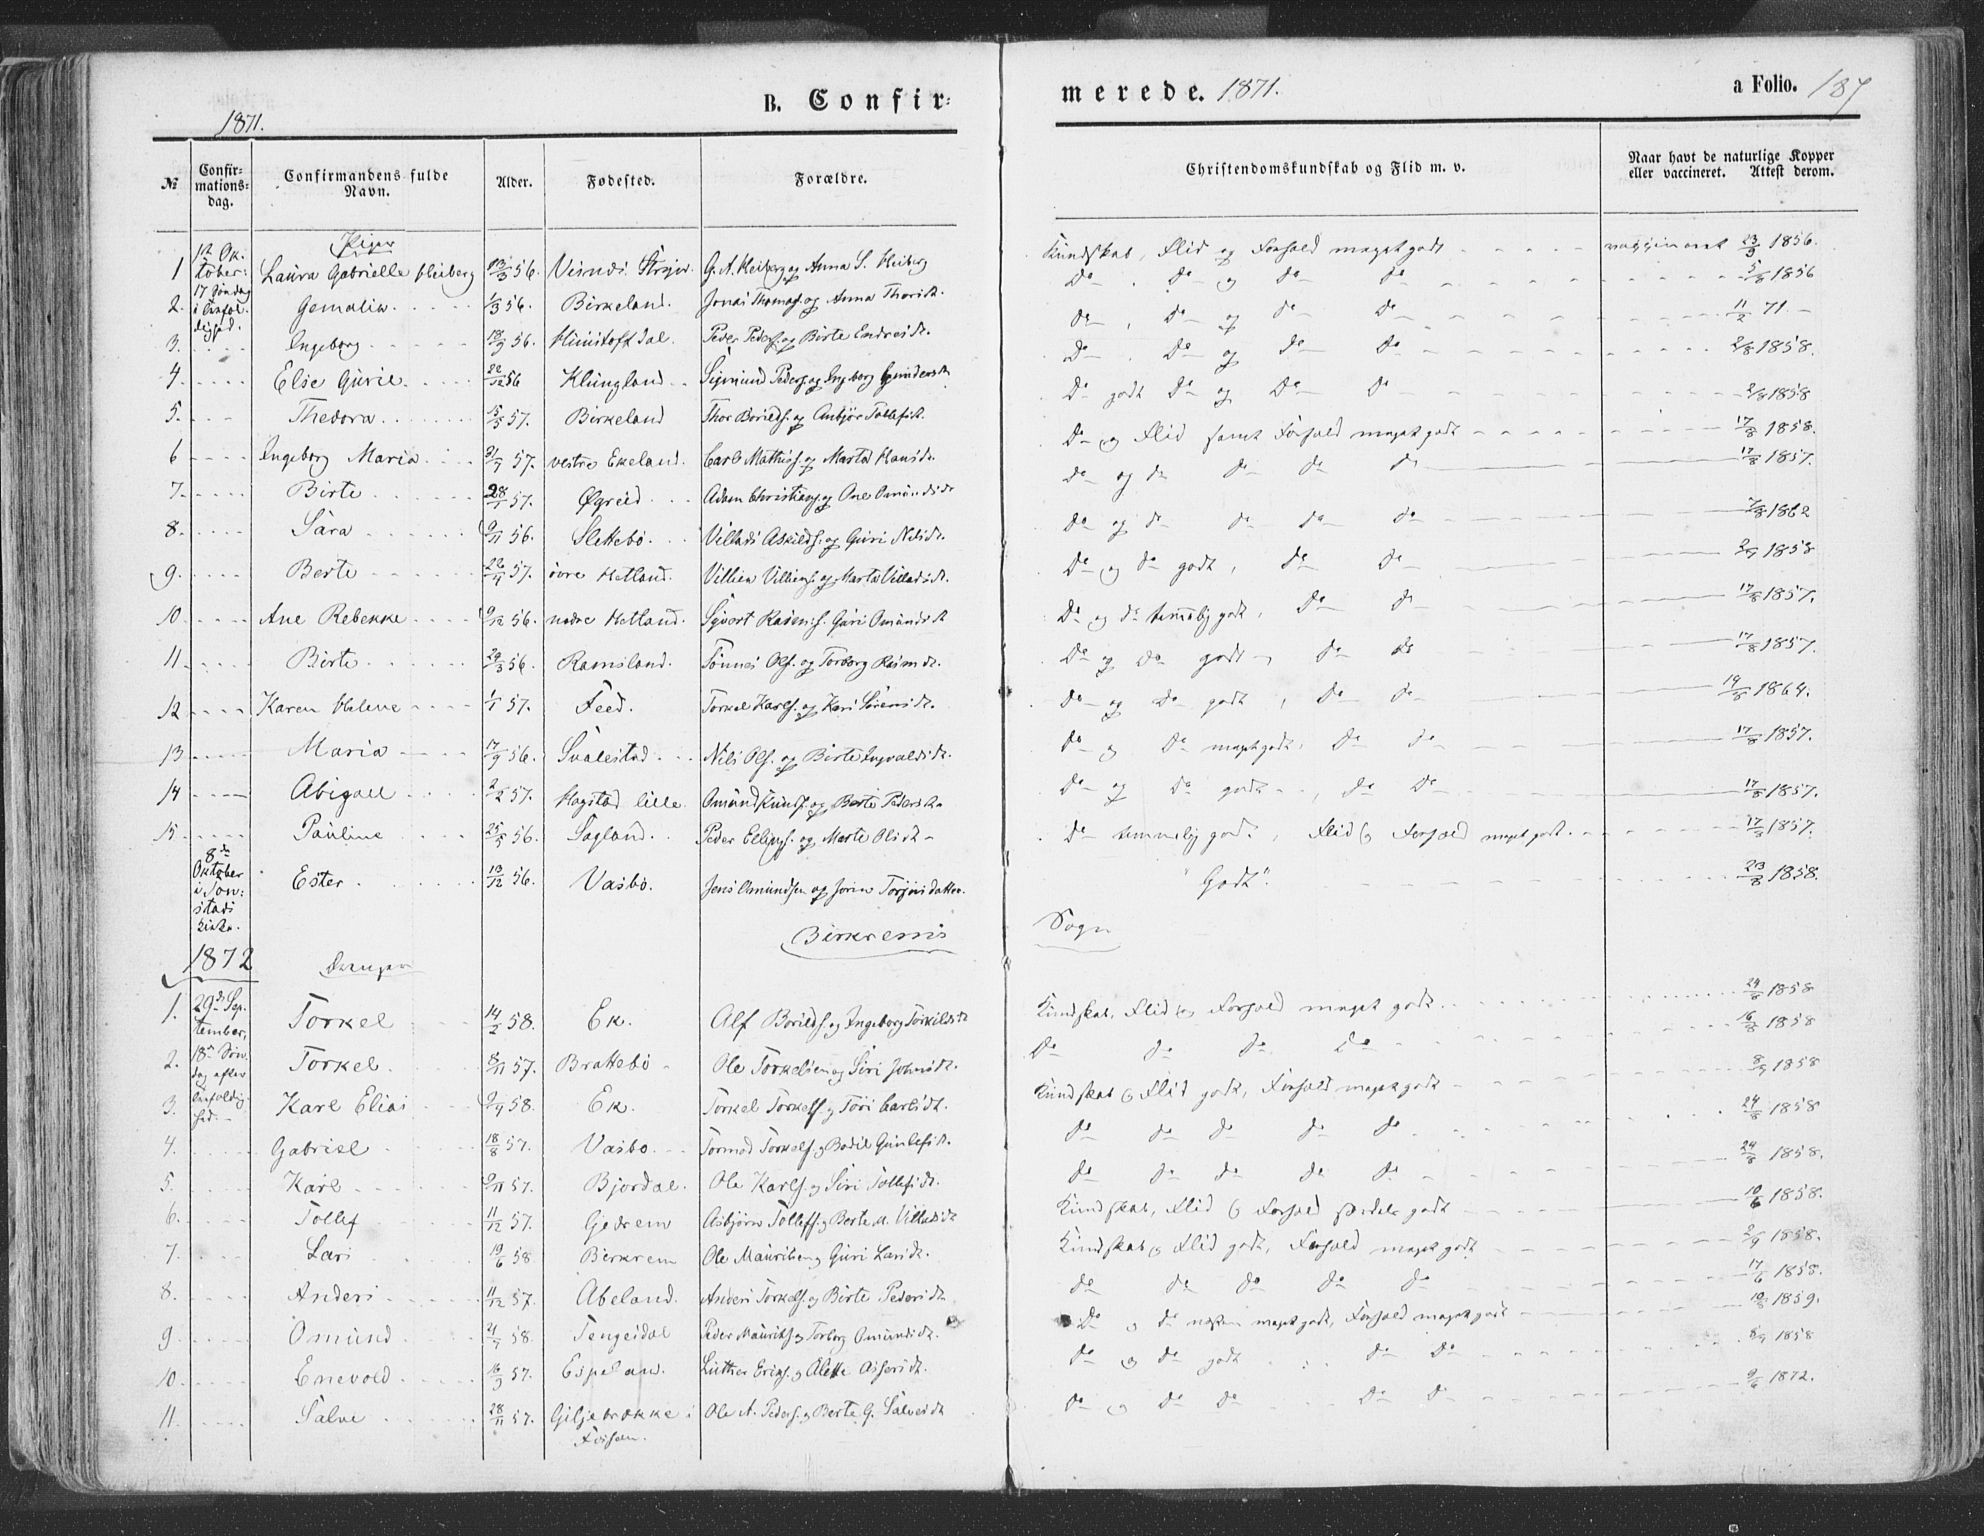 B. Confir=
merede. 1871.
a Folio. 187
1871.
№
Confir=
mations=
dag.
Confirmandens fulde
Navn.
Alder.
Fødested.
Forældre.
Christendomskundskab og Flid m. v.
Naar havt de naturlige Kopper
eller vaccineret. Attest derom.
Piger
1 Ok-
tober
17 Søndag
1 Laura Gabrielle Heiberg 13/3 56. G. A. Heiberg og Anna S. Heiberg Kundskab, Flid og Forhold meget godt - vaccineret 23/9 1856.
2. Gemalia /3 56. Birkeland. Jonas Thomas. og Anna Thorsdt. Do Do og Do Do 1856
3. Ingeborg 18/9 56. Peder Peders. og Birte Endresdt. Do, Do og Do Do 11/2 71
4. Else Gurie 22/12 56 Klungland Sigmund Peders. og Ingeborg Do Do og Do Do 2/8 1858.
5. Thedora 15/5 57. Birkeland Thor Borilds. og Anbjør Tollefsdt. Do godt Do og Do Do 2/8 1858
6 Ingeborg Maria 31/7 57. vestre Ekeland. Carl Mathias. og Marta Hansdt. Do og Flid samt Forhold meget godt 17/8 1858.
7. Birte 28/1 57. Øgreid Adam Christians. og Ane Omundsdt Do og do do do do 17/8 1857.
8. Sara 9/11 56. Slettebø. Villads Askilds. og Guri Nilsdt. Do og do do do do 7/8 1862
9. Berte 22/4 57. øvre Hetland. Villien Villiens. og Marta Villadsdt. Do og do godt, do do 2/9 1858
10. Ane Rebekke 9/12 56. nedre Hetland. Syvert Rasmus. Guri Omundsdt Do og do temmelig godt, Do do 17/8 1857.
11. Birte 29/3 56. Ramsland. Tønnes Ols. og Torborg Rasmdt. Do og Do godt, do do 17/8 1857.
12 Karen Helene 1/1 57. Feed. Torkel Karls. og Kari Sørensdt. Do og Do godt, Do do 19/8 1864.
13 Maria 17/9 56. Svalestad Nils Ols. og Birte Ingvaldsdt. Do og Do meget godt, Do do 17/8 1857.
14 Abigael 2/2 57. Hogstad lille Omund Knuds. og Berte Pedersdt Do og Do godt, do Do 17/8 1857.
15 Pauline 25/5 56. Sagland. Peder Ellings. og Marte Olsdt Do temmelig godt, Flid og Forhold meget godt. 17/8 1857.
8de
Oktober
i Son=
stads
Kirke.
Ester 13/12 56. Vasbø. Jens Omundsen og Jorin Torjusdatter. "Godt". 23/8 1858.
Birkrems Sogn
1872 Drenger
29de Sep-
tember,
18de Søn-
dag efter
1. Torkel 14/2 58. Ek. Alf Borilds. og Ingeborg Torkildsdt Kundskab, Flid og Forhold meget godt 24/8 1858
2. Torkel. 8/11 57. Brattebø Ole Torkelsen og Siri Johnsdt. Do do do Do 16/8 1858
3. Karl Elias 9/4 58. Ek. Torkel Torkels. og Tori Carlsdt. Kundskab og Flid godt, Forhold meget godt 8/9 1858
4. Gabriel 18/8 57. Vasbø Tormod Torkels. og Bodil Gunlefsdt. Do do do do do 24/8 1858
5. Karl 9/11 57. Bjordal. Ole Karls. og Siri Tollefsdt. Do do do do do 24/8 1858.
6. Tollef 11/12 57. Gjedrem Asbjørn Tollefs. og Berte M. Villadsdt Kundskab, Flid og Forhold særdeles godt 10/6 1858.
7. Lars 19/6 58 Berkrem Ole Mauritsen og Guri Larsdt. Kundskab og Flid godt, Forhold meget godt 2/9 1858.
8. Anders 11/12 57. Abeland. Anders Torkels. og Birte Pedersdt Do do do do do 17/6 1858.
9 Omund 21/4 58. Tengesdal Peder Maurits. og Torborg Omundsdt. Do og do næsten meget godt, Forhold meget godt 19/8 1859.
10. Enevold 16/9 57. Espeland. Luther Eriks. og Alette Asersdt. Do og do godt do do 8/9 1858
11. Salve 28/11 57. Giljebrekke i Ole A. Peders. og Berte G. Salvesdt Do og do do Do Do 9/6 1872.